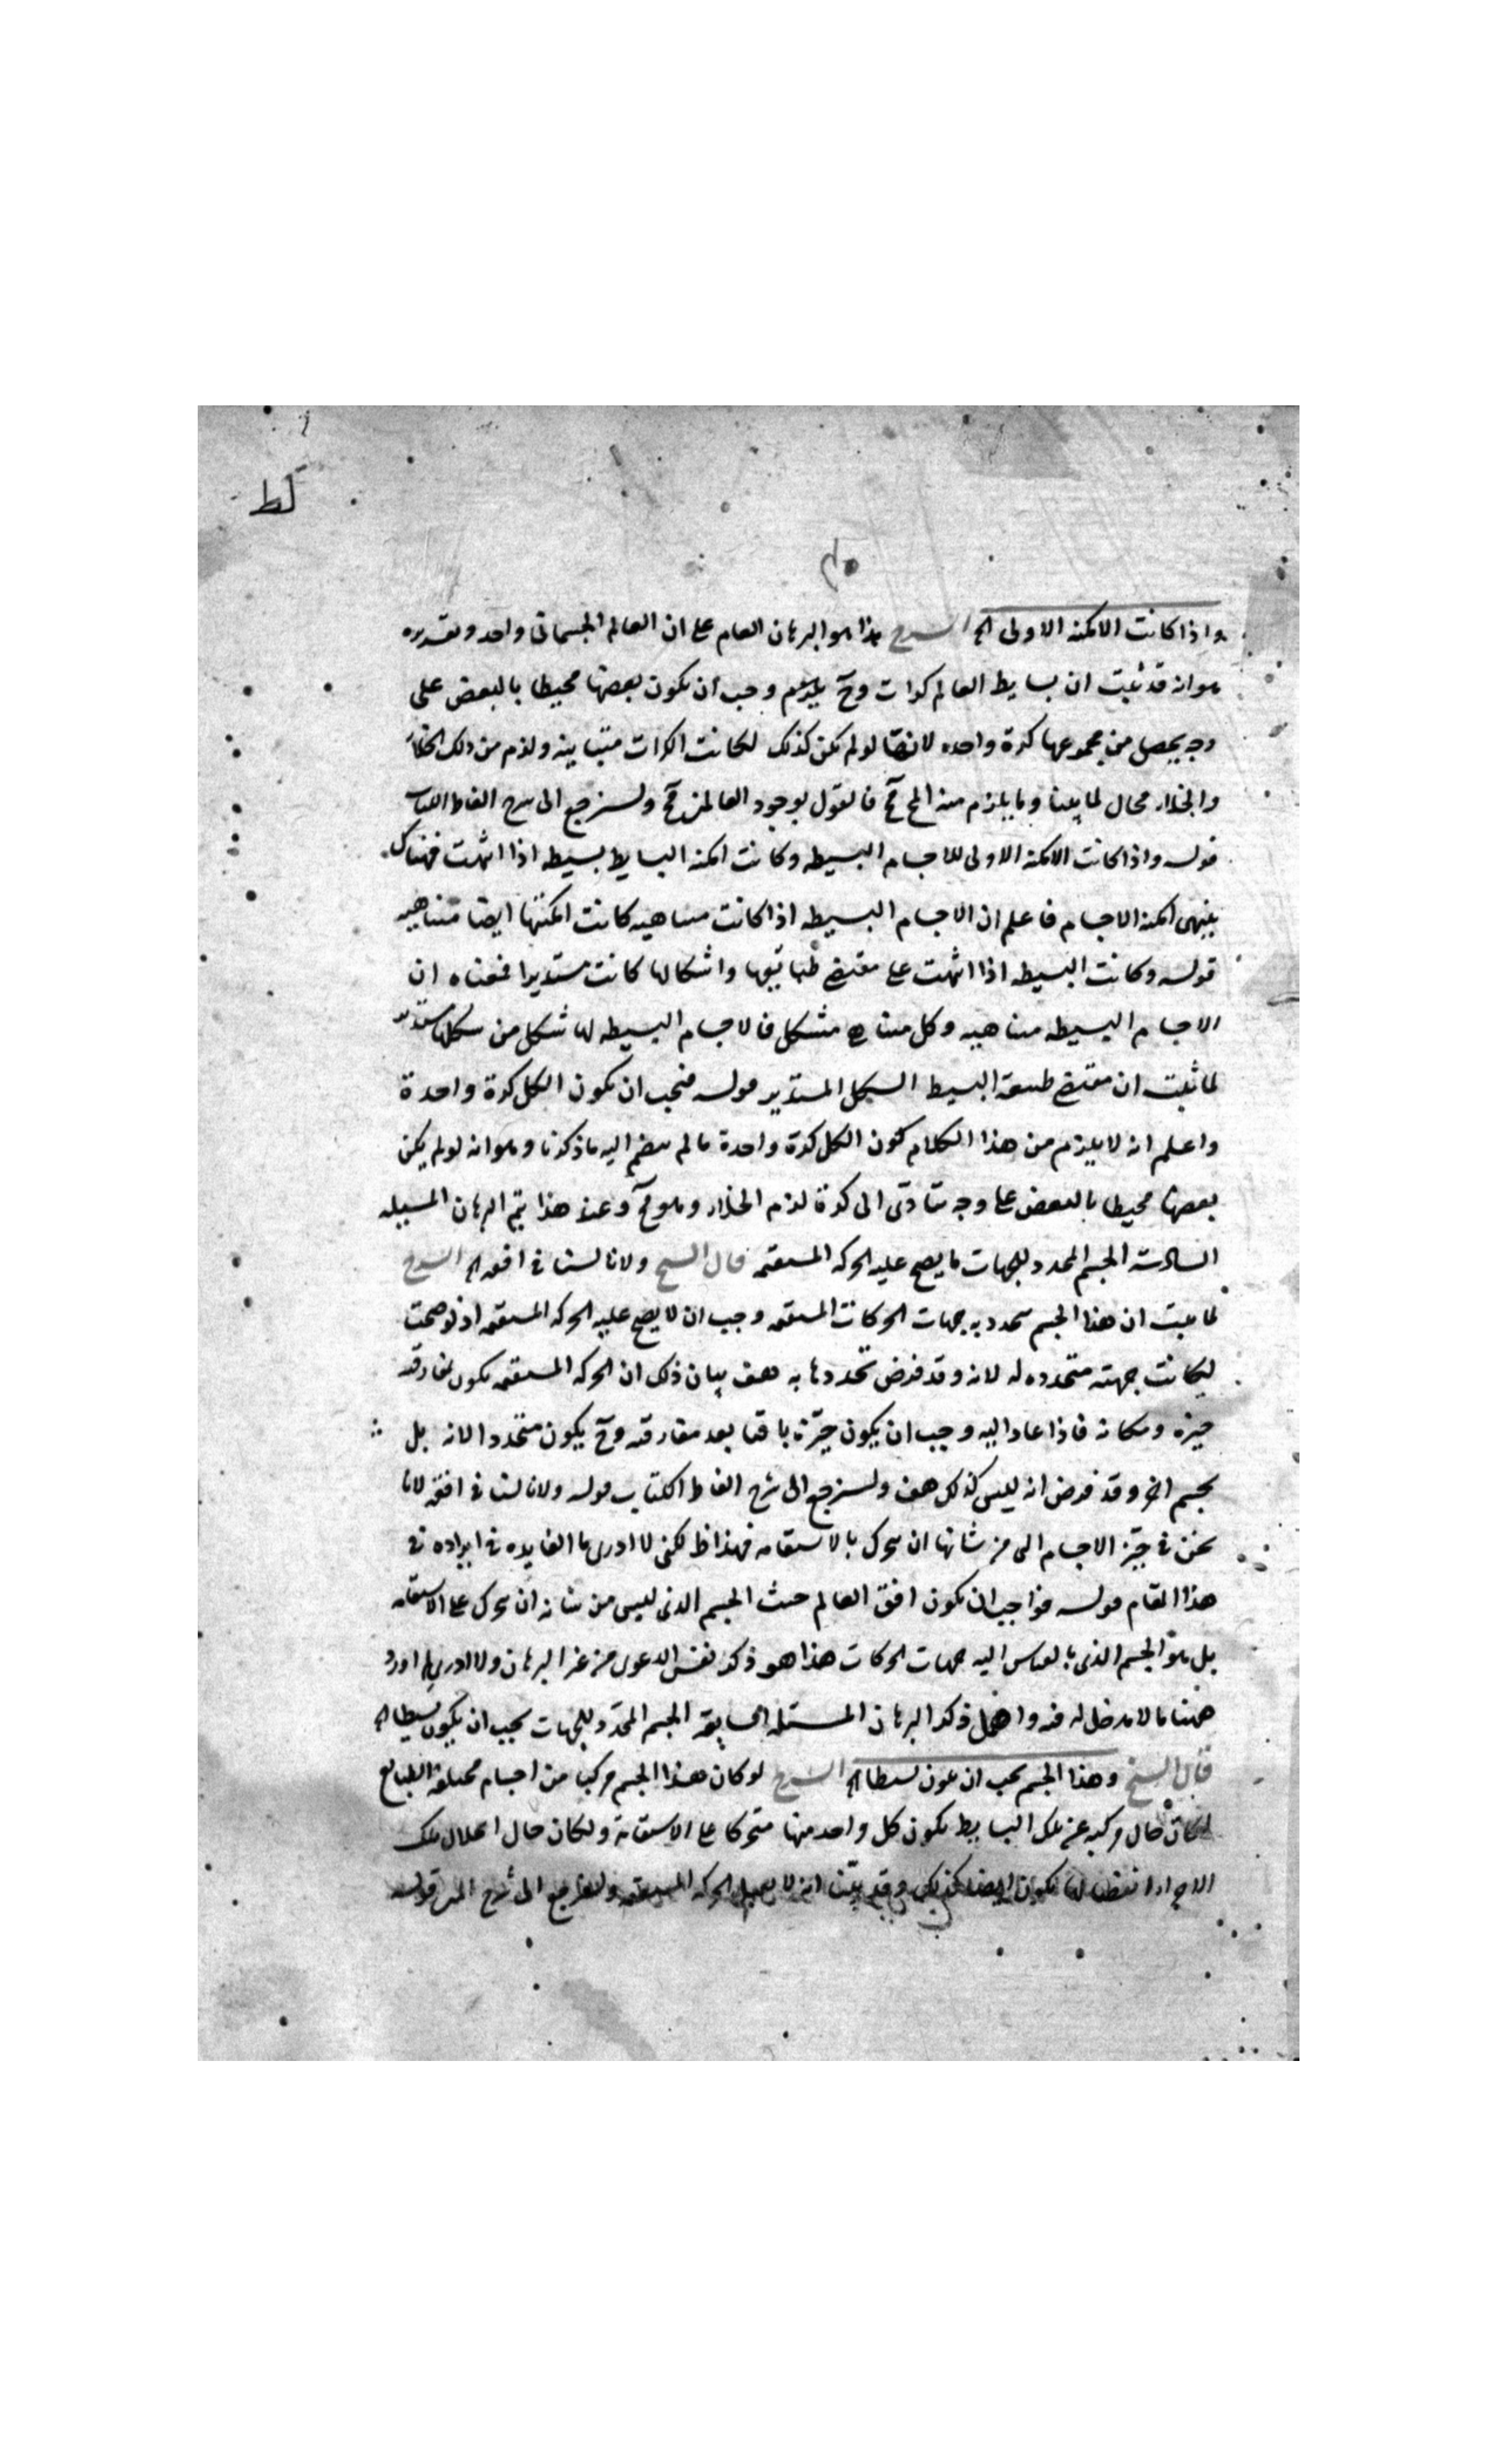 لط
واذا كانت الامكنه الاولى الخ الشرح هذا هو البرهان العام على ان العالم الجسمانى واحد وتقديره
هو انه قد ثبت ان بسايط العالم كرات وح يلزم وجب ان يكون بعضها محيطا بالبعض على
وجه يحصل من مجموعها كرة واحده لانها لو لم يكن كذلك لكانت الكرات متباينه ولزم من ذلك الخلاء
والخلاء محال لما بينا وما يلزم منه المح مح فالقول بوجود العالمين مح ولنرجع الى شرح الفاظ الكتاب
قوله واذا كانت الامكنه الاولى للاجسام البسيطه وكانت امكنه البسايط بسيطه اذا اثمت فهناك
ينتهى امكنه الاجسام فاعلم ان الاجسام البسيطه اذا كانت متناهيه كانت امكنتها ايضا متناهيه
قوله وكانت البسيطه اذا اثمت على مقتضى طبائعها واشكالها كانت مستديرا فمعناه ان
الاجسام البسيطه متناهيه وكل متناه متشكل فالاجسام البسيطه لها شكل من شكلها مستدير
لما ثبت ان مقتضى طبيعة البسيط الشكل المستدير قوله فيجب ان يكون الكل كرة واحدة
واعلم انه لا يلزم من هذا الكلام كون الكل كرة واحدة ما لم ينضم اليه ما ذكرنا وهو انه لو لم يكن
بعضها محيطا بالبعض على وجه يتادى الى كرة لزم الخلاء وهو مح وعند هذا يتم البرهان المسئله
السادسة الجسم المحدد للجهات ما يصح عليه الحركه المستقيمه قال الشيخ ولانا لسنا فى افقه الخ الشرح
لما ثبت ان هذا الجسم يتحدد به جهات الحركات المستقيمه وجب ان لا يصح عليه الحركه المستقيمه اذ لو صحت
لكانت جهته متحدده له لانه وقد فرض تحددها به هف بيان ذلك ان الحركه المستقيمه يكون لمفارقه
حيزه ومكانه فاذا عاد اليه وجب ان يكون حيّزه باقيا بعد مفارقته وح يكون متحددا لانه بل
بجسم اخر وقد فرض انه ليس كذلك هف ولنرجع الى شرح الفاظ الكتاب قوله ولانا لسنا فى افقه لانا
نحن فى حيّز الاجسام التى من شانها ان يتحرك بالاستقامه فهذا ظ لكنى لا ادرى ما الفايده فى ايراده فى
هذا المقام قوله فواجب ان يكون افق العالم حيث الجسم الذى ليس من شانه ان يتحرك على الاستقامه
بل هو الجسم الذى بالقياس اليه جهات الحركات هذا هو ذكر نفس الدعوى من غير البرهان ولا ادرى لم اورد
ههنا ما لا مدخل له فيه واهمل ذكر البرهان المسئله السابعه الجسم المحدد للجهات يجب ان يكون بسيطا الخ
قال الشيخ وهذا الجسم يجب ان يكون بسيطا الخ الشرح لو كان هذا الجسم مركبا من اجسام مختلفة الطبايع
لكان حال تركبه عن تلك البسايط يكون كل واحد منها متحركا على الاستقامة ولكان حال انحلال تلك
الاجزاء يكون ايضا كذلك وقد بيّنا انه لا يقبل الحركه المستقيمه ولنرجع الى شرح المتن قوله